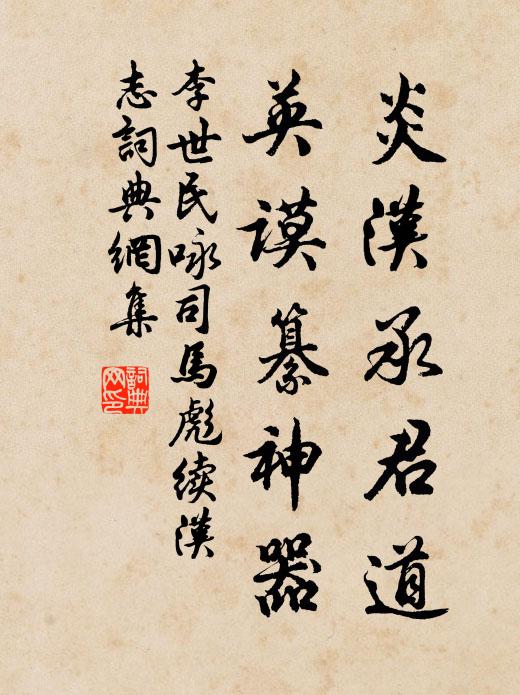 炎漢承君道
英謨纂神器
李世民咏司馬彪续漢
志詞典網集
詞典網印